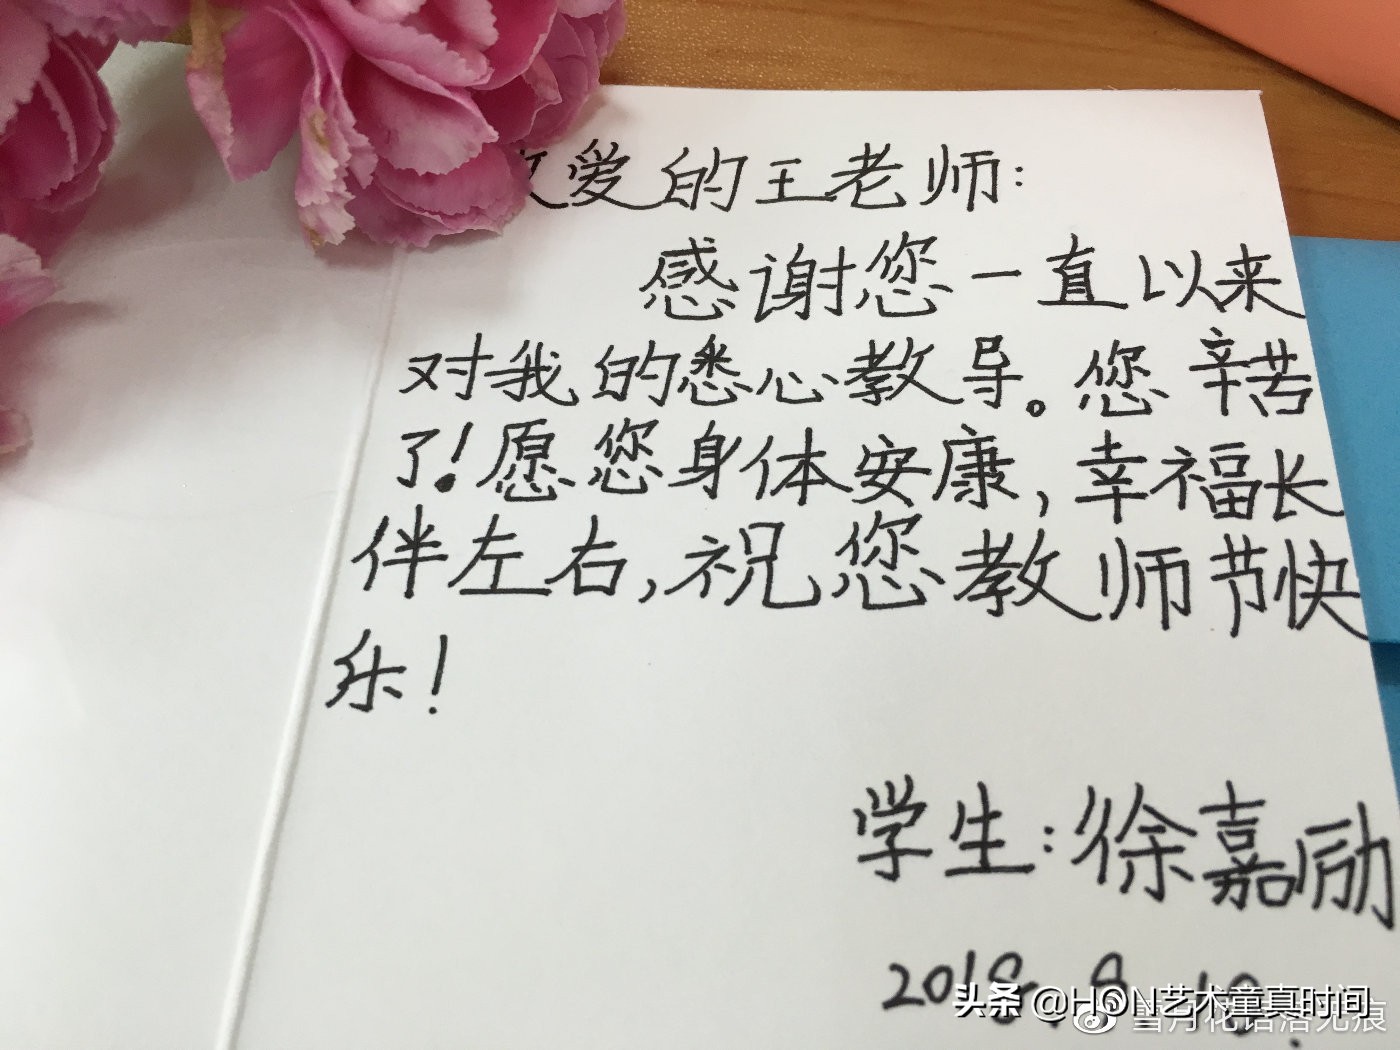 爱的王老师：
感谢您一直以来
对我的悉心教导。您辛苦
了！愿您身体安康，幸福长
伴左右，祝您教师节快
乐！
学生：徐嘉励
2018.
头条 @HON艺术童真时间
雪月花语洛无痕